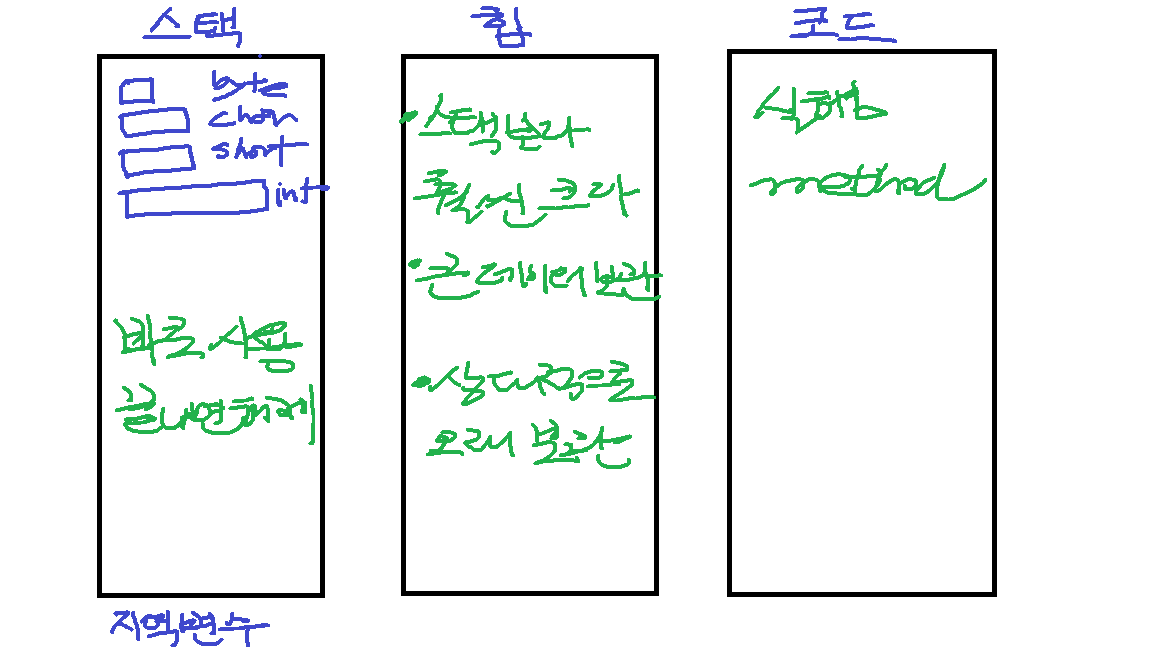 스택
byte
char
short
int
바로 사용
끝나면 해제
지역변수
힙
• 스택보다
훨씬 크다
• 큰 데이터 보관
• 상대적으로
오래 보관
코드
실행
method